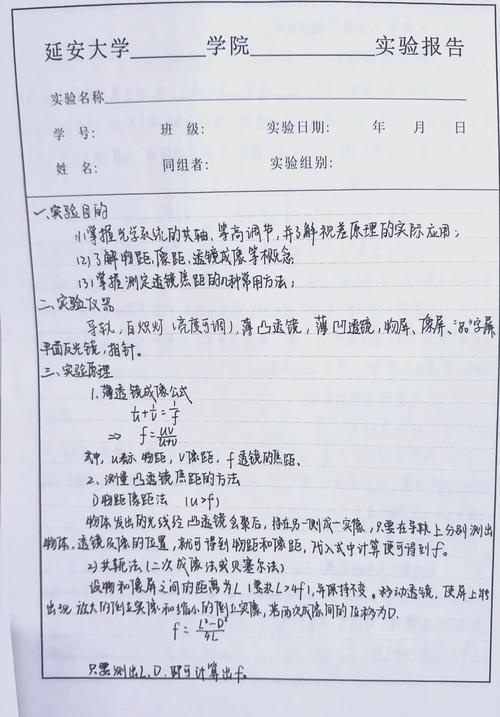 延安大学______学院__________实验报告
实验名称
学 号: 班 级: 实验日期: 年 月 日
姓 名: 同组者: 实验组别:
一、实验目的
(1)掌握光学系统的共轴、等高调节,并了解视差原理的实际应用;
(2)了解物距、像距、透镜成像等概念
(3)掌握测定透镜焦距的几种常用方法;
二、实验仪器
导轨,白炽灯(亮度可调),薄凸透镜,薄凹透镜,物屏、像屏、"品"字屏
平面反光镜,指针。
三、实验原理
1、薄透镜成像公式
1/u+1/v=1/f
⇒ f=uv/(u+v)
式中,u表示物距,v像距,f透镜的焦距.
2、测量凸透镜焦距的方法
1)物距像距法 (u>f)
物体发出的光线经凸透镜会聚后,将在另一侧成一实像,只要在导轨上分别测出
物体、透镜及像的位置,就可得到物距和像距,代入式中计算便可得到f。
2)共轭法(二次成像法或贝塞尔法)
设物和像屏之间的距离为L(要求L>4f),并保持不变。移动透镜,使屏上能
出现放大的倒立实像和缩小的倒立实像,若两次成像间的位移为D.
f=(L²-D²)/4L
只要测出L、D,即可计算出f。